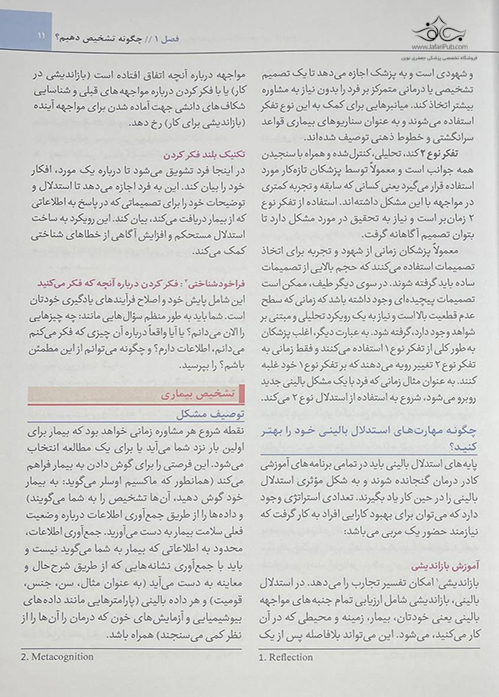 فصل ۱ // چگونه تشخیص دهیم؟ ۱۱
www.JafariPub.com
فروشگاه تخصصی پزشکی جعفری نوین
و شهودی است و به پزشک اجازه می‌دهد تا یک تصمیم
تشخیصی یا درمانی متمرکز بر فرد را بدون نیاز به مشاوره
بیشتر اتخاذ کند. میانبرهایی برای کمک به این نوع تفکر
استفاده می‌شوند و به عنوان سناریوهای بیماری قواعد
سرانگشتی و خطوط ذهنی توصیف شده‌اند.
تفکر نوع ۲ کند، تحلیلی، کنترل‌شده و همراه با سنجیدن
همه جوانب است و معمولاً توسط پزشکان تازه‌کار مورد
استفاده قرار می‌گیرد یعنی کسانی که سابقه و تجربه کمتری
در مواجهه با این مشکل داشته‌اند. استفاده از تفکر نوع
۲ زمان‌بر است و نیاز به تحقیق در مورد مشکل دارد تا
بتوان تصمیم آگاهانه گرفت.
معمولاً پزشکان زمانی از شهود و تجربه برای اتخاذ
تصمیمات استفاده می‌کنند که حجم بالایی از تصمیمات
ساده باید گرفته شوند. در سوی دیگر طیف، ممکن است
تصمیمات پیچیده‌ای وجود داشته باشد که زمانی که سطح
عدم قطعیت بالا است و نیاز به یک رویکرد تحلیلی و مبتنی بر
شواهد وجود دارد، گرفته شود. به عبارت دیگر، اغلب پزشکان
به طور کلی از تفکر نوع ۱ استفاده می‌کنند و فقط زمانی به
تفکر نوع ۲ تغییر رویه می‌دهند که بر تفکر نوع ۱ خود غلبه
کنند. به عنوان مثال زمانی که فرد با یک مشکل بالینی جدید
روبرو می‌شود، شروع به استفاده از استدلال نوع ۲ می‌کند.
چگونه مهارت‌های استدلال بالینی خود را بهتر
کنید؟
پایه‌های استدلال بالینی باید در تمامی برنامه‌های آموزشی
کادر درمان گنجانده شوند و به شکل مؤثری استدلال
بالینی را در حین کار یاد بگیرند. تعدادی استراتژی وجود
دارد که می‌توان برای بهبود کارایی افراد به کار گرفت که
نیازمند حضور یک مربی می‌باشد:
آموزش بازاندیشی
بازاندیشی۱ امکان تفسیر تجارب را می‌دهد. در استدلال
بالینی، بازاندیشی شامل ارزیابی تمام جنبه‌های مواجهه
بالینی یعنی خودتان، بیمار، زمینه و محیطی که در آن
کار می‌کنید، می‌شود. این می‌تواند بلافاصله پس از یک
1. Reflection
مواجهه درباره آنچه اتفاق افتاده است (بازاندیشی در
کار) یا با فکر کردن درباره مواجهه‌های قبلی و شناسایی
شکاف‌های دانشی جهت آماده شدن برای مواجهه آینده
(بازاندیشی برای کار) رخ دهد.
تکنیک بلند فکر کردن
در اینجا فرد تشویق می‌شود تا درباره یک مورد، افکار
خود را بیان کند. این به فرد اجازه می‌دهد تا استدلال و
توضیحات خود را برای تصمیماتی که در پاسخ به اطلاعاتی
که از بیمار دریافت می‌کند، بیان کند. این رویکرد به ساخت
استدلال مستحکم و افزایش آگاهی از خطاهای شناختی
کمک می‌کند.
فراخودشناختی۲: فکر کردن درباره آنچه که فکر می‌کنید
این شامل پایش خود و اصلاح فرآیندهای یادگیری خودتان
است. شما باید به طور منظم سؤال‌هایی مانند: چه چیزهایی
را الان می‌دانم؟ یا آیا واقعاً درباره آن چیزی که فکر می‌کنم
می‌دانم، اطلاعات دارم؟ و چگونه می‌توانم از این مطمئن
باشم؟ را بپرسید.
تشخیص بیماری
توصیف مشکل
نقطه شروع هر مشاوره زمانی خواهد بود که بیمار برای
اولین بار نزد شما می‌آید یا برای یک مطالعه انتخاب
می‌شود. این فرصتی را برای گوش دادن به بیمار فراهم
می‌کند (همانطور که ماکسیم اوسلر می‌گوید: به بیمار
خود گوش دهید، آن‌ها تشخیص را به شما می‌گویند)
و داده‌ها را از طریق جمع‌آوری اطلاعات درباره وضعیت
فعلی سلامت بیمار به دست می‌آورید. جمع‌آوری اطلاعات،
محدود به اطلاعاتی که بیمار به شما می‌گوید نیست و
باید با جمع‌آوری نشانه‌هایی که از طریق شرح‌حال و
معاینه به دست می‌آید (به عنوان مثال، سن، جنس،
قومیت) و هر داده بالینی (پارامترهایی مانند داده‌های
بیوشیمیایی و آزمایش‌های خون که درمان را آن‌ها را از
نظر کمی می‌سنجند) همراه باشد.
2. Metacognition